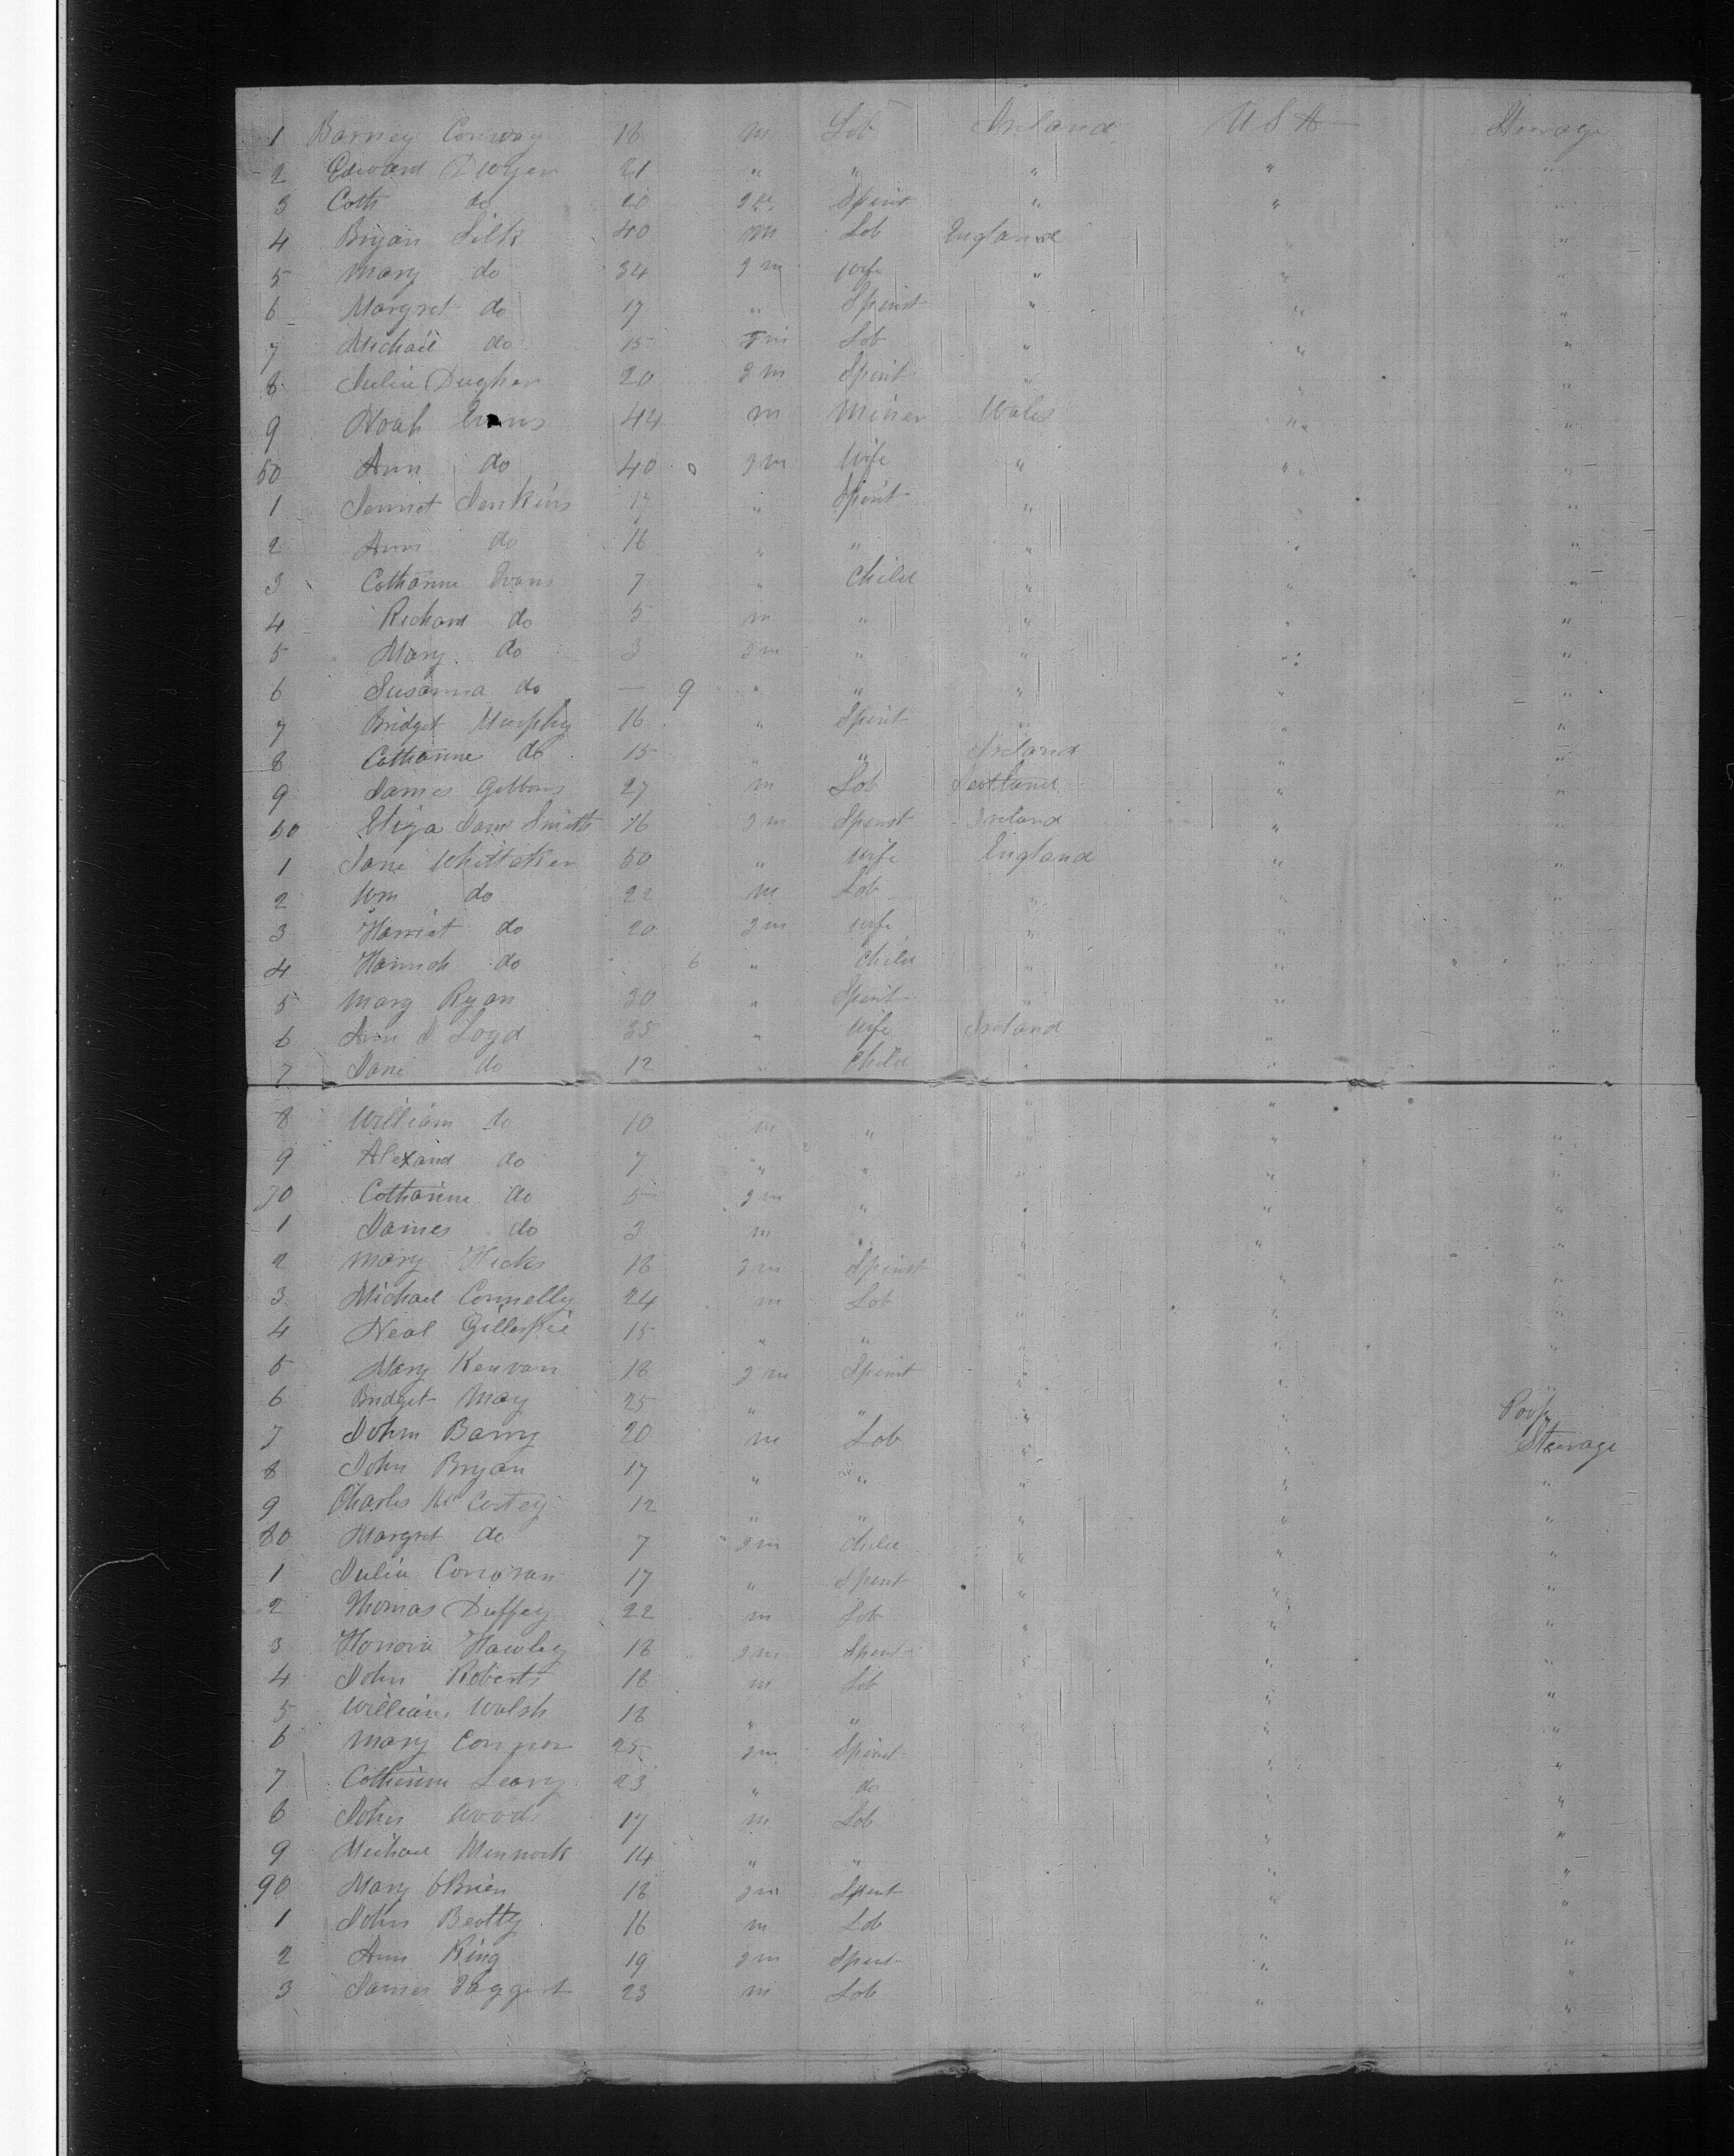 1 Barney Conway 18 m Lob Ireland USA Steerage
2 Edward Dwyer 21 " " " " "
3 Cath do 20 Spinst " " "
4 Bryan Silk 40 m Lob England " "
5 Mary do 34 fm wife " " "
6 Margret do 17 " Spinst " " "
7 Michael do 15 m Lob " " "
8 Julia Dugher 20 fm Spinst " " "
9 Noah Evans 44 m Miner Wales " "
50 Ann do 40 fm Wife " " "
1 Jennet Jenkins 17 " Spinst " " "
2 Ann do 16 " " " " "
3 Catharine Evans 7 " Child " " "
4 Richard do 5 m " " " "
5 Mary do 3 fm " " " "
6 Susanna do — 9 " " " " "
7 Bridget Murphy 16 " Spinst " " "
8 Catharine do 15 " " Ireland " "
9 James Gibbons 27 m Lob Scotland " "
60 Eliza Jane Smith 16 fm Spinst Ireland " "
1 Jane Whittaker 50 " Wife England " "
2 Wm do 22 m Lob " " "
3 Harriet do 20 fm wife " " "
4 Hannah do 6 " Child " " "
5 Mary Ryan 30 " Spinst " " "
6 Ann Loyd 35 " Wife Ireland " "
7 Jane do 12 " Child " " "
8 William do 10 m " " " "
9 Alexand do 7 " " " " "
70 Catharine do 5 fm " " " "
1 James do 3 m " " " "
2 Mary Hicks 18 fm Spinst " " "
3 Michael Connelly 24 m Lob " " "
4 Neal Gillespie 15 " " " " "
5 Mary Kenvan 18 fm Spinst " " "
6 Bridget May 25 " " " " Poop
7 John Barry 20 m Lob " " Steerage
8 John Bryan 17 " " " " "
9 Charles Mc Cartey 12 " " " " "
80 Margret do 7 fm Child " " "
1 Julia Corcoran 17 " Spinst " " "
2 Thomas Duffey 22 m Lob " " "
3 Honora Hawley 18 fm Spinst " " "
4 John Roberts 18 m Lob " " "
5 William Walsh 18 " " " " "
6 Mary Connor 25 fm Spinst " " "
7 Catherine Leary 23 " do " " "
8 John Wood 17 m Lob " "
9 Michael Minnock 14 " " " "
90 Mary O'Brien 18 fm Spinst " "
1 John Beatty 16 m Lob " "
2 Ann King 19 fm Spinst " "
3 James Taggert 23 m Lob " "